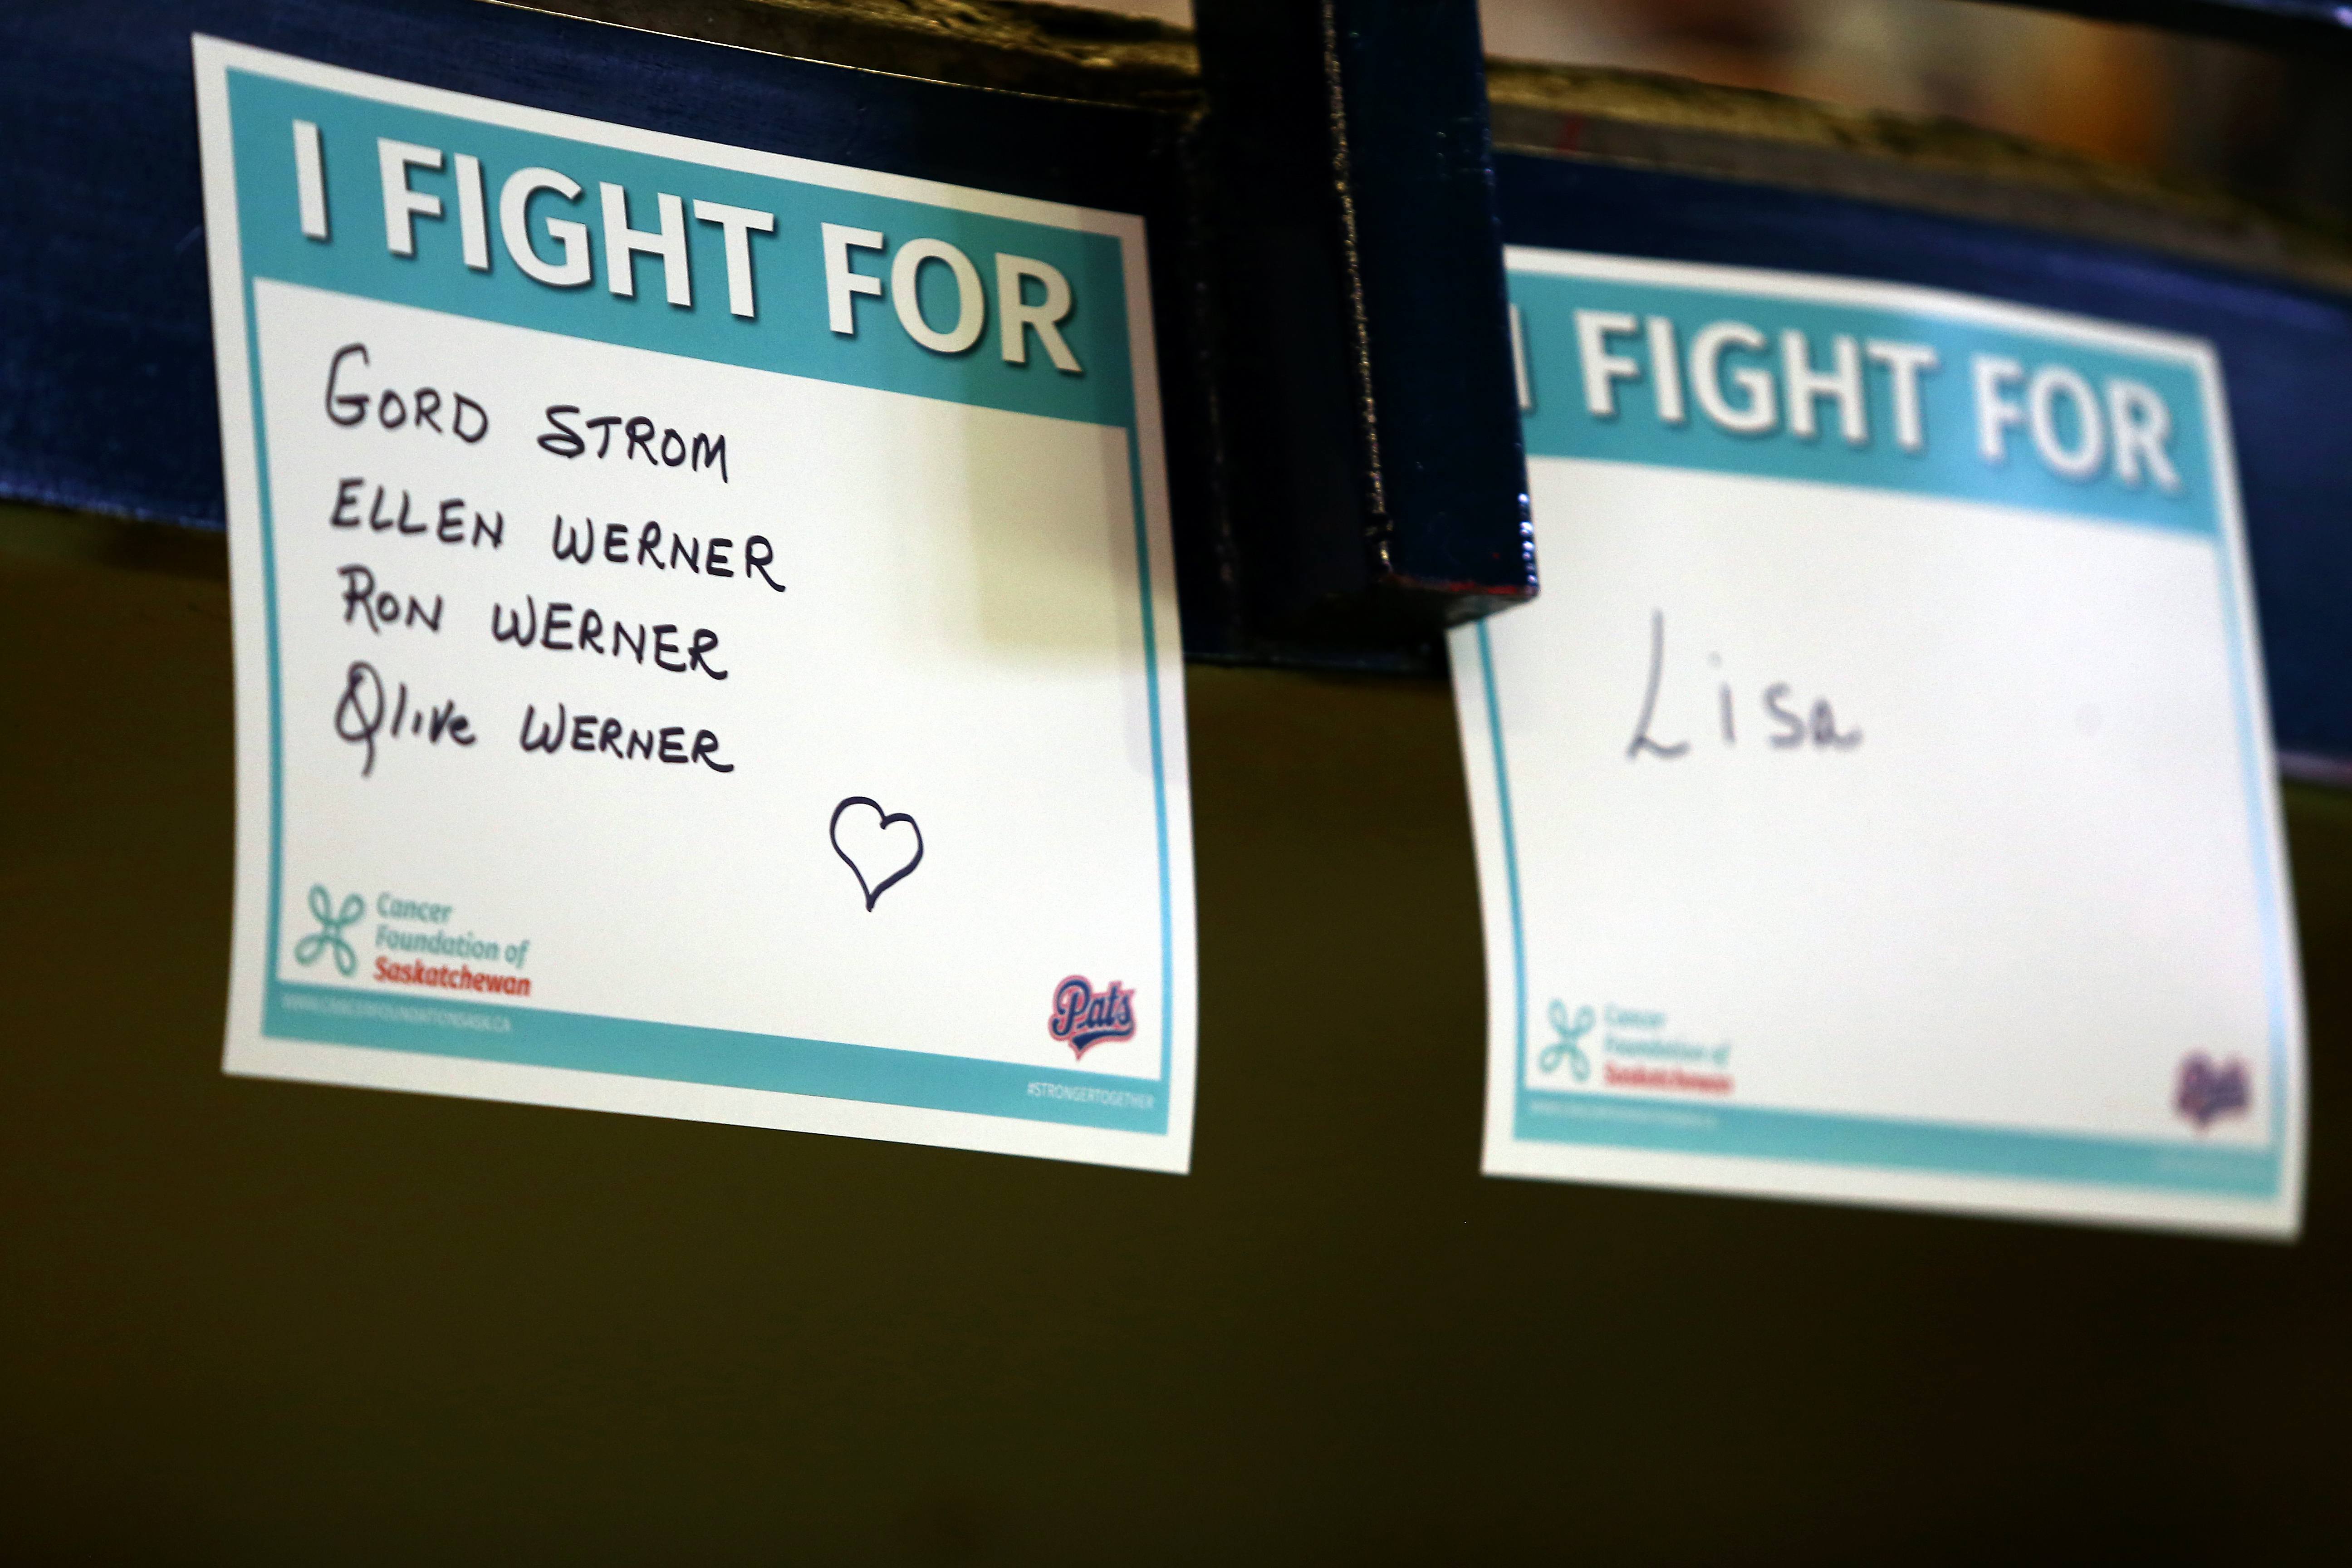 I FIGHT FOR
GORD STROM
ELLEN WERNER
RON WERNER
Olive WERNER
Cancer
Foundation of
Saskatchewan
WWW.CANCERFOUNDATIONSASK.CA
Pats
#STRONGERTOGETHER
I FIGHT FOR
Lisa
Cancer
Foundation of
Saskatchewan
Pats